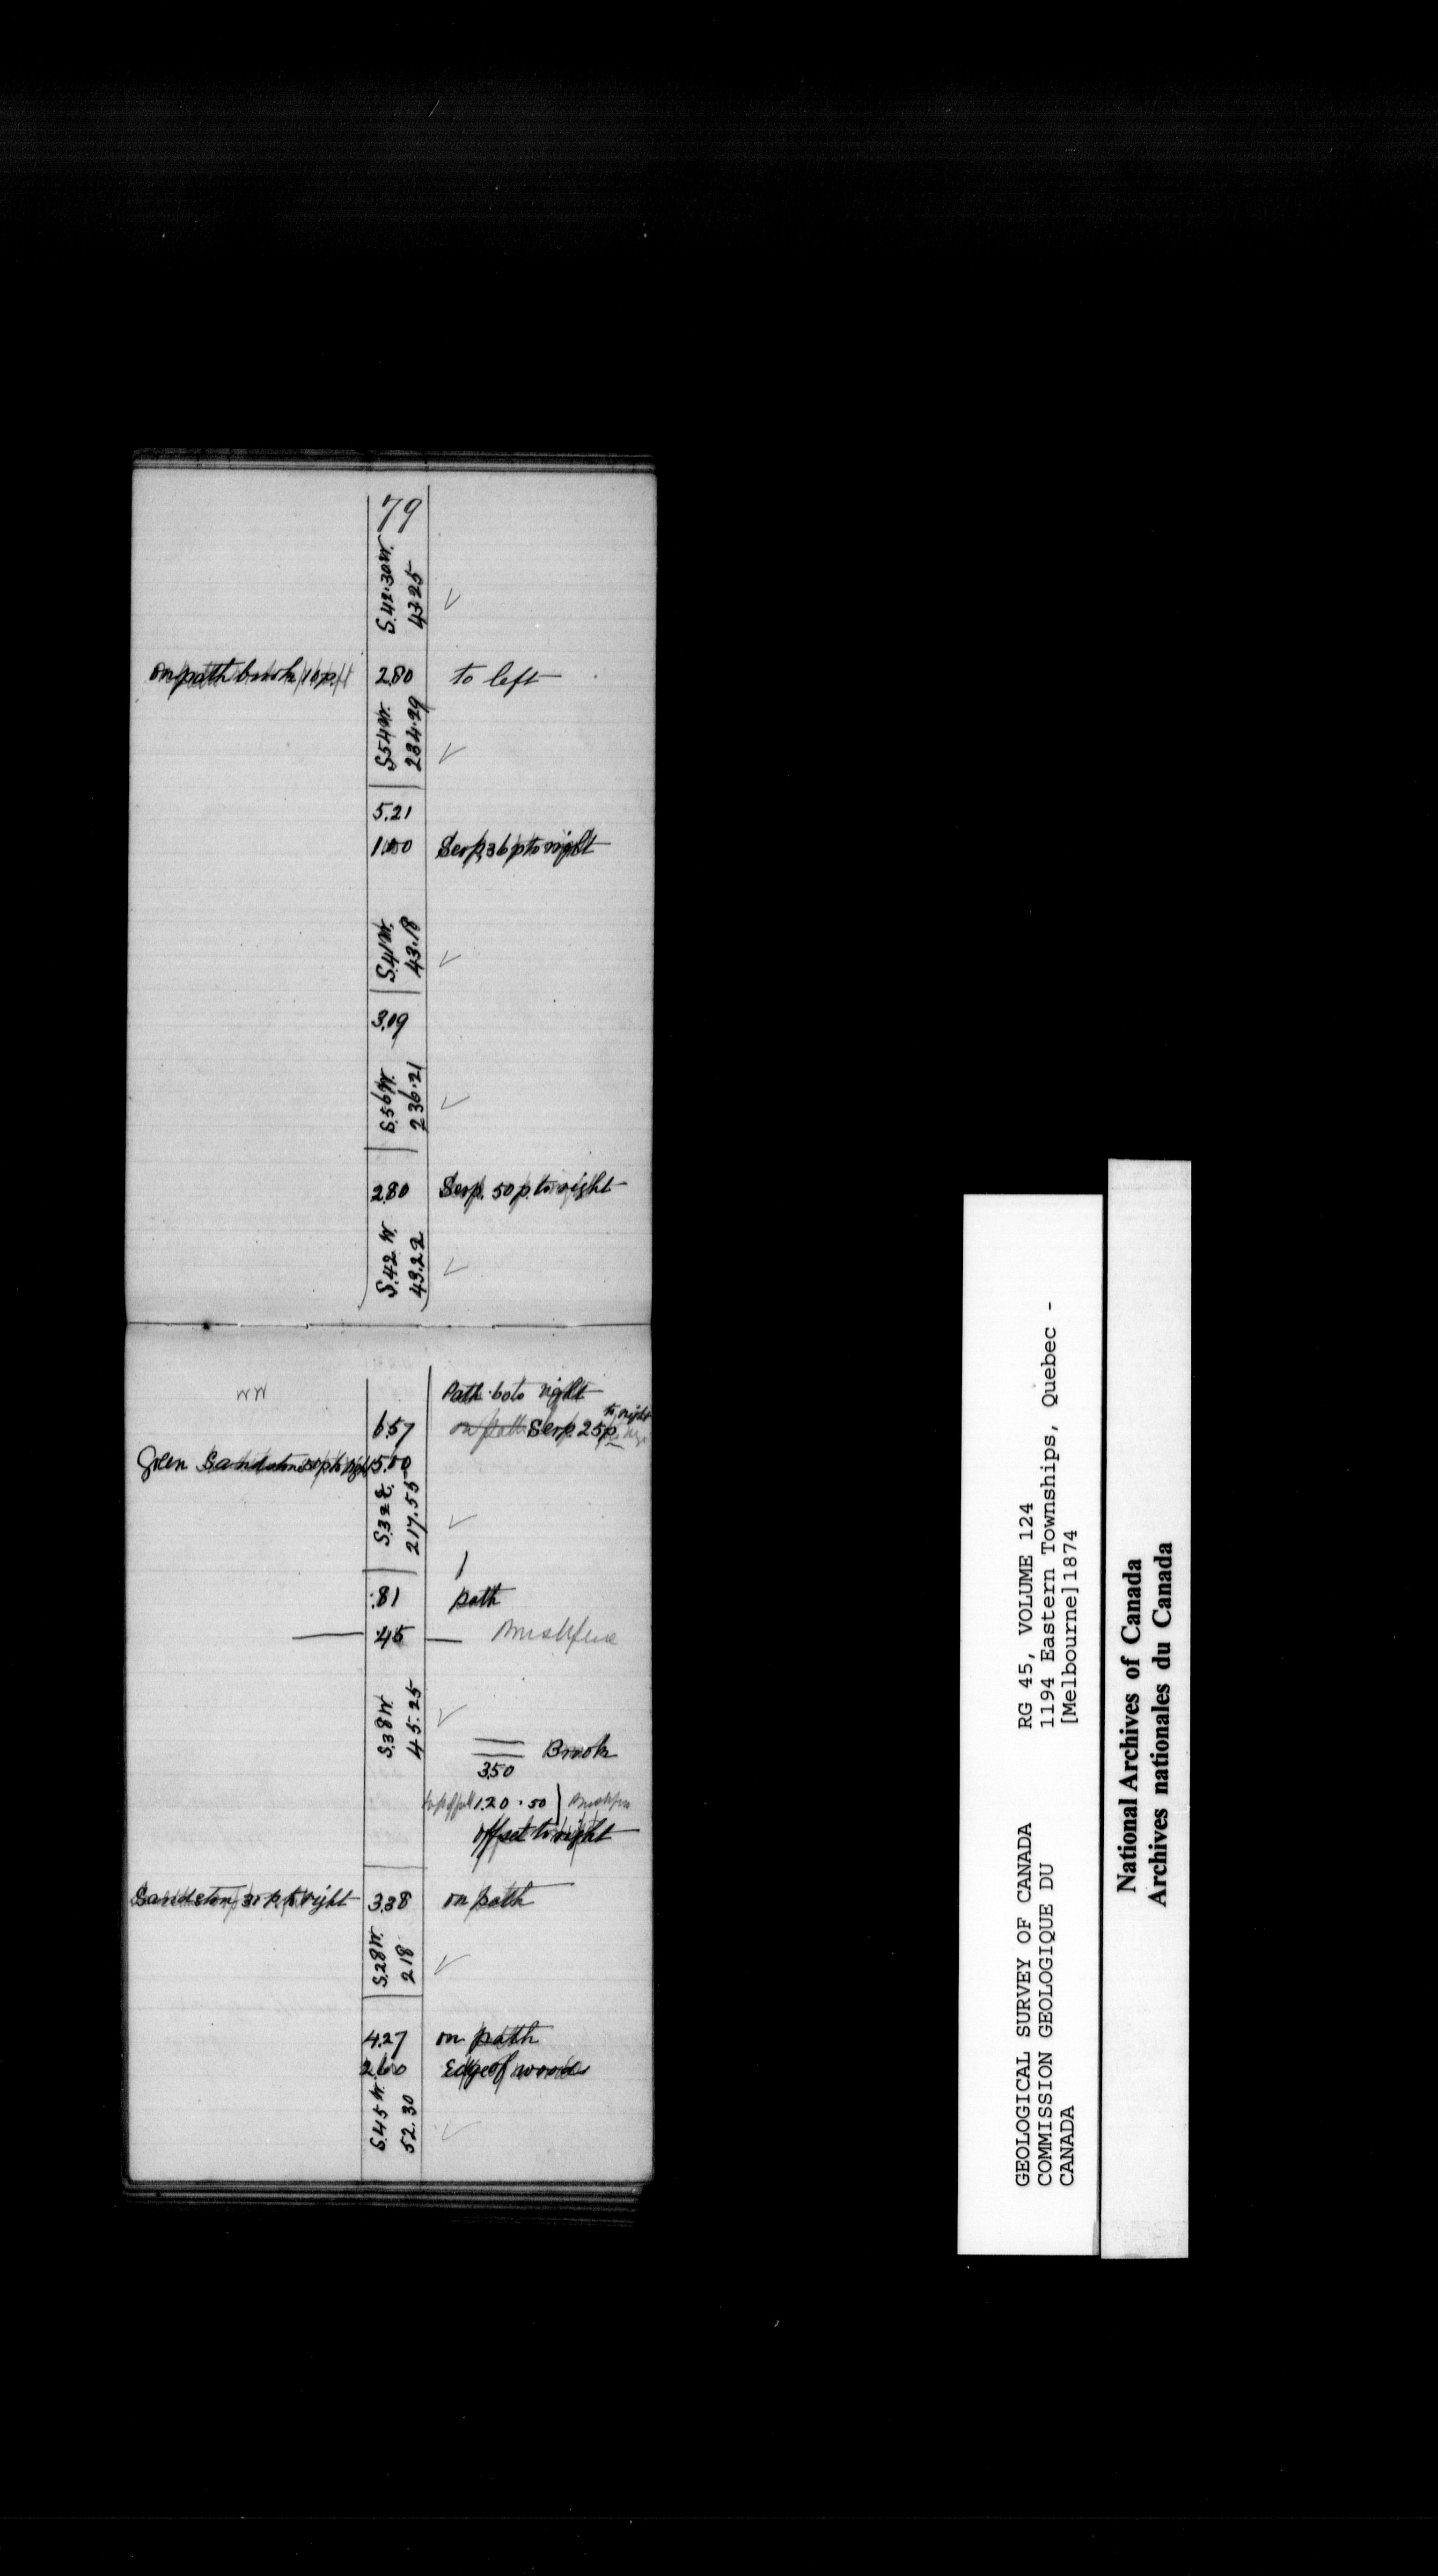 79
S.42.30W.
43.25
on path brook 10 p 2.80 to left
S54W.
234.29
5.21
1.00 Serp. 36 p to right
S.41W.
43.18
3.09
S.56W.
236.21
2.80 Serp. 50 p. to right
S.42 W.
43.22
Path to right
to right
6.57 on path Serp. 25 p.
Green Sandstone p to right 5.00
S.32E.
217.55
.81 path
.45 Brushfence
S.38W.
45.25
Brook
3.50
1.20 .50
offset to right
Sandston 30 p. to right 3.38 on path
S.28W.
218
4.27 on path
2.60 Edge of woods
S.45 W.
52.30
GEOLOGICAL SURVEY OF CANADA
COMMISSION GEOLOGIQUE DU
CANADA
RG 45, VOLUME 124
1194 Eastern Townships, Quebec -
[Melbourne]1874
National Archives of Canada
Archives nationales du Canada